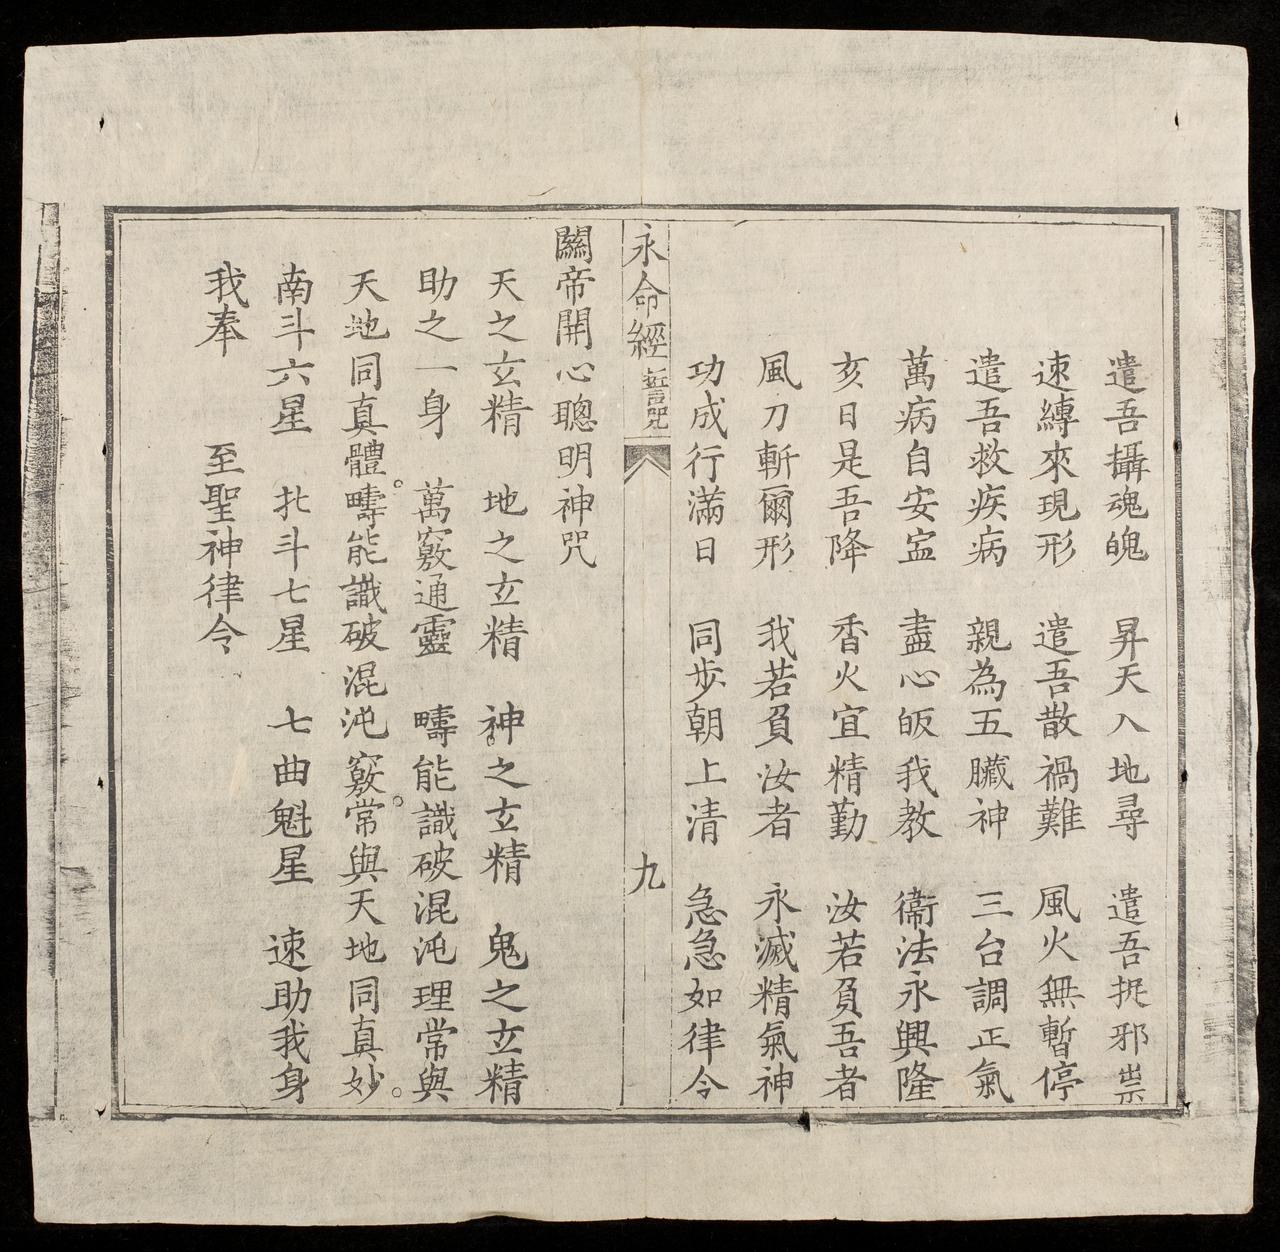 遣吾攝魂魄　昇天入地尋　遣吾捉邪祟
速縛來現形　遣吾散禍難　風火無暫停
遣吾救疾病　親為五臟神　三台調正氣
萬病自安寍　盡心皈我教　衞法永興隆
亥日是吾降　香火宜精勤　汝若負吾者
風刀斬爾形　我若負汝者　永滅精氣神
功成行滿日　同步朝上清　急急如律令
永命經　誓咒　九
關帝開心聰明神咒
天之玄精　地之玄精　神之玄精　鬼之玄精
助之一身　萬竅通靈　疇能識破混沌理常與
天地同真體。疇能識破混沌竅。常與天地同真妙。
南斗六星　北斗七星　七曲魁星　速助我身
我奉　至聖神律令